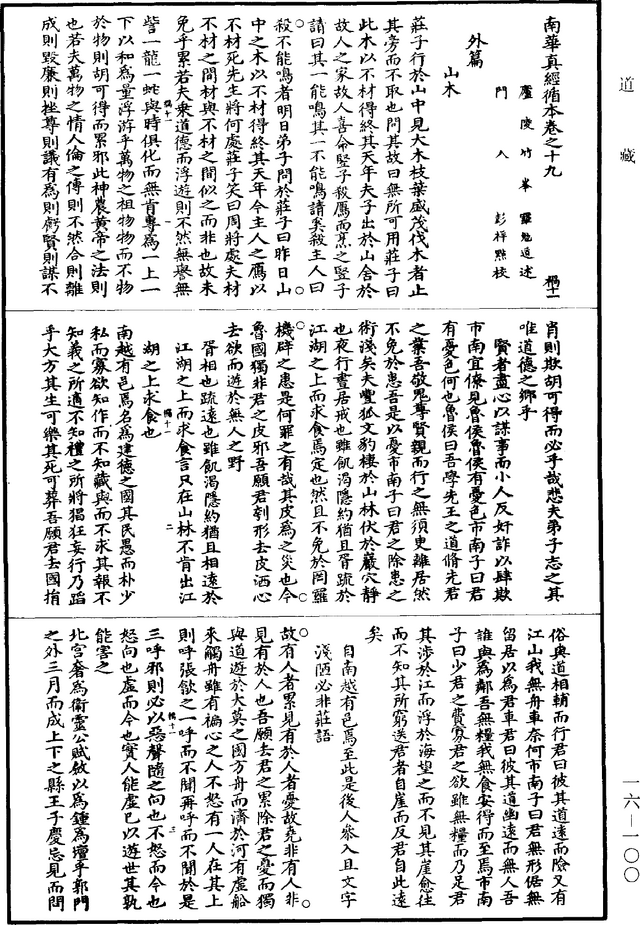 道藏
南華真經循本卷之十九
廬陵竹峯羅勉道述
門人彭祥點校
外篇
山木
莊子行於山中見大木枝葉盛茂伐木者止
其旁而不取也問其故曰無所可用莊子曰
此木以不材得終其天年夫子出於山舍於
故人之家故人喜命豎子殺鴈而烹之豎子
請曰其一能鳴其一不能鳴請奚殺主人曰
殺不能鳴者明日弟子問於莊子曰昨日山
中之木以不材得終其天年今主人之鴈以
不材死先生將何處莊子笑曰周將處夫材
不材之間材與不材之間似之而非也故未
免乎累若夫乘道德而浮遊則不然無譽無
訾一龍一蛇與時俱化而無肯專為一上一
下以和為量浮游乎萬物之祖物物而不物
於物則胡可得而累邪此神農黃帝之法則
也若夫萬物之情人倫之傳則不然合則離
成則毀廉則挫尊則議有為則虧賢則謀不
肖則欺胡可得而必乎哉悲夫弟子志之其
唯道德之鄉乎
賢者盡心以謀事而小人反奸詐以肆欺
市南宜僚見魯侯魯侯有憂色市南子曰君
有憂色何也魯侯曰吾學先王之道脩先君
之業吾敬鬼尊賢親而行之無須臾離居然
不免於患吾是以憂市南子曰君之除患之
術淺矣夫豐狐文豹棲於山林伏於巖穴靜
也夜行晝居戒也雖飢渴隱約猶且胥疏於
江湖之上而求食焉定也然且不免於罔羅
機辟之患是何罪之有哉其皮為之災也今
魯國獨非君之皮邪吾願君刳形去皮洒心
去欲而遊於無人之野
胥相也疏遠也雖飢渴隱約猶且相遠於
江湖之上而求食言只在山林不肯出江
湖之上求食也
南越有邑焉名為建德之國其民愚而朴少
私而寡欲知作而不知藏與而不求其報不
知義之所適不知禮之所將猖狂妄行乃蹈
乎大方其生可樂其死可葬吾願君去國捐
俗與道相輔而行君曰彼其道遠而險又有
江山我無舟車奈何市南子曰君無形倨無
留居以為君車君曰彼其道幽遠而無人吾
誰與為鄰吾無糧我無食安得而至焉市南
子曰少君之費寡君之欲雖無糧而乃足君
其涉於江而浮於海望之而不見其崖愈往
而不知其所窮送君者自崖而反君自此遠
矣
自南越有邑焉至此是後人參入且文字
淺陋必非莊語
故有人者累見有於人者憂故堯非有人非
見有於人也吾願去君之累除君之憂而獨
與道遊於大莫之國方舟而濟於河有虛船
來觸舟雖有褊心之人不怒有一人在其上
則呼張歙之一呼而不聞再呼而不聞於是
三呼邪則必以惡聲隨之向也不怒而今也
怒向也虛而今也實人能虛己以遊世其孰
能害之
北宮奢為衛靈公賦斂以為鐘為壇乎郭門
之外三月而成上下之縣王子慶忌見而問
一六—一〇〇